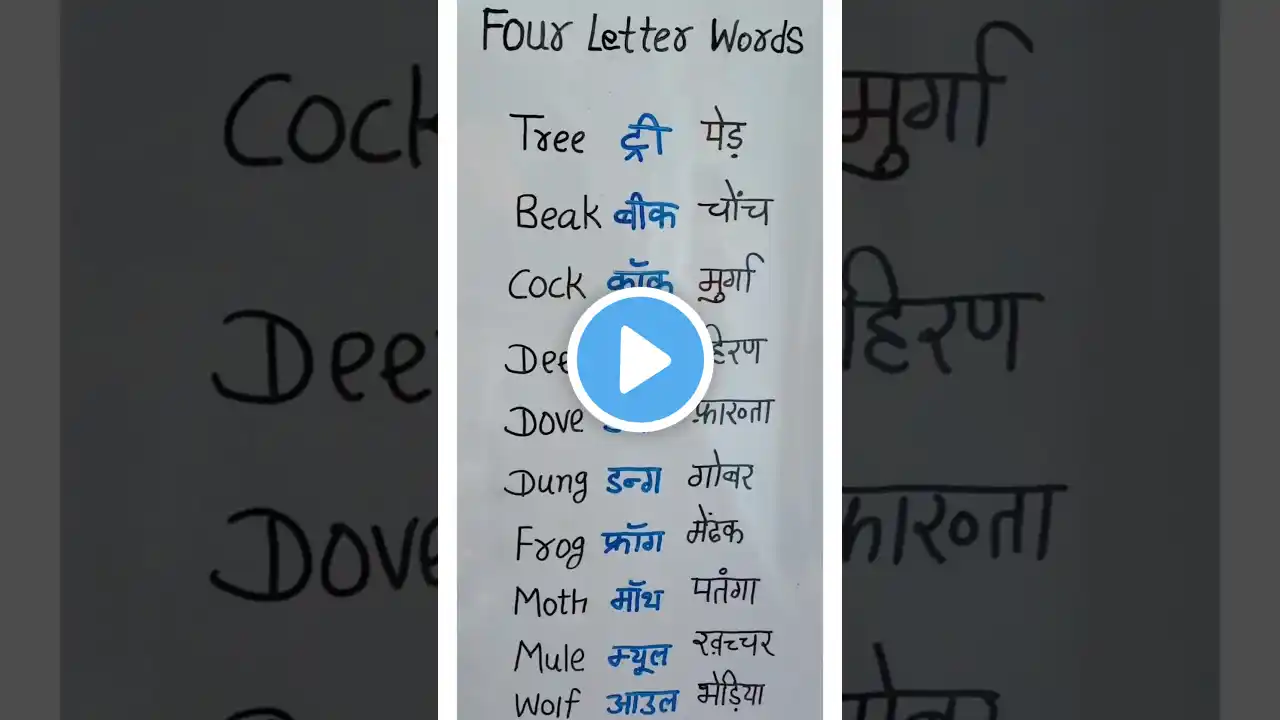 Four Letter Words
Tree ट्री पेड़
Beak बीक चोंच
Cock कॉक मुर्गा
हिरण
Dove फ़ारुता
Dung डन्ग गोबर
Frog फ्रॉग मेंढक
Moth मॉथ पतंगा
Mule म्यूल ख़च्चर
Wolf आउल भेड़िया